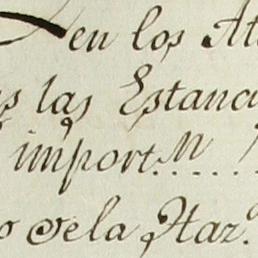 en los At
s las Estanci
import.M.....
o dela Haz.